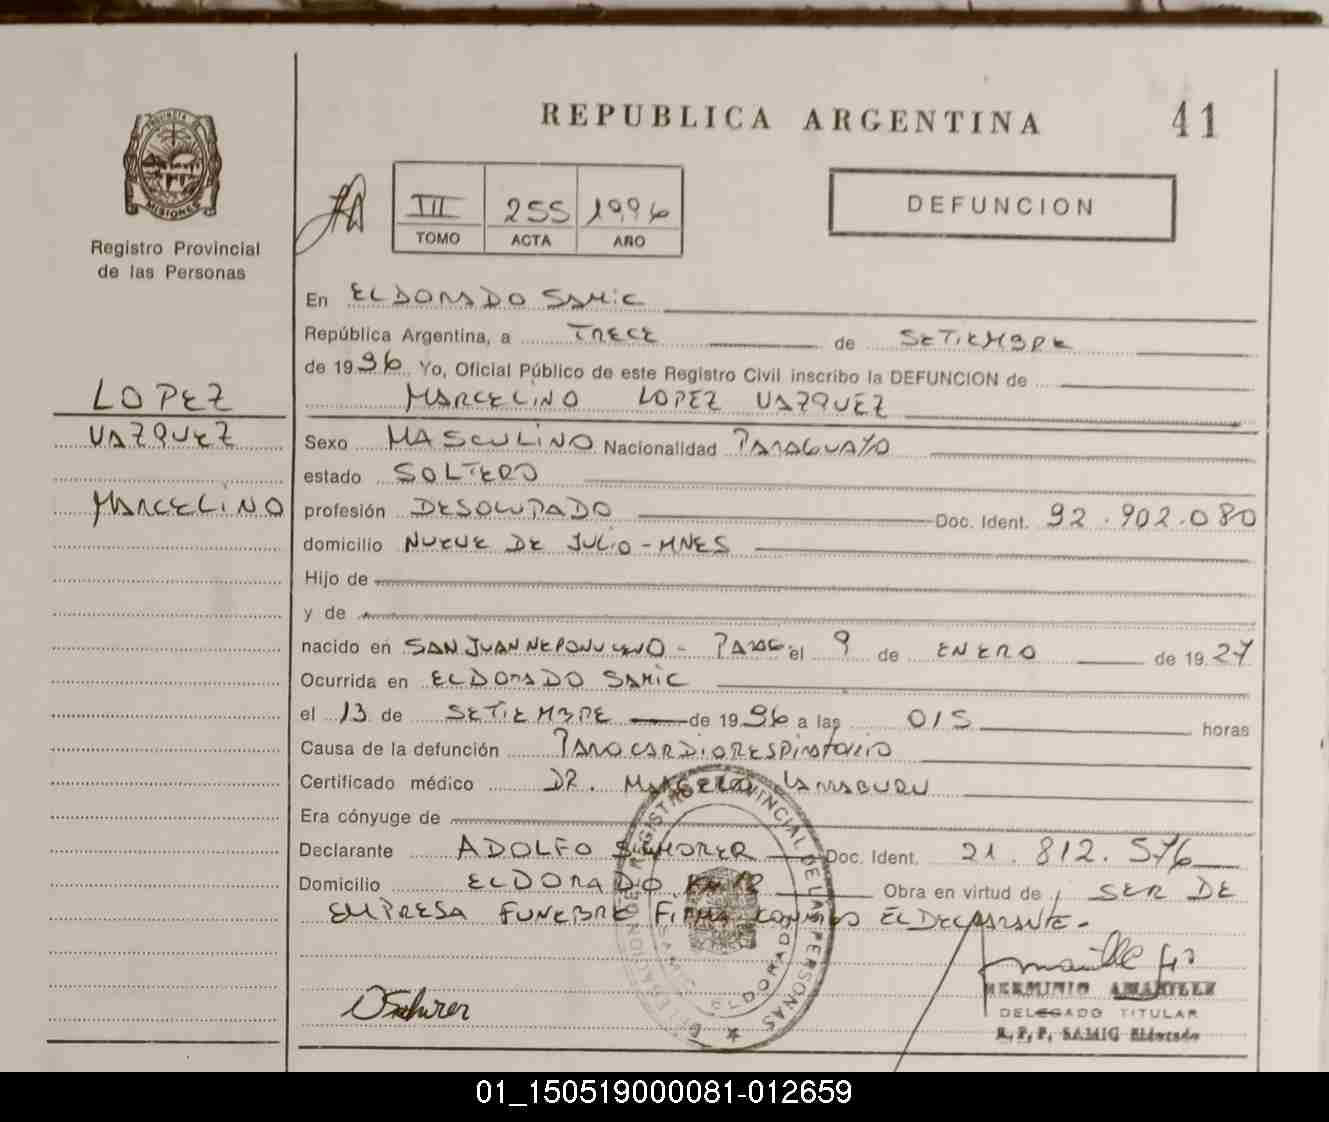 REPUBLICA ARGENTINA
41
PROVINCIA DE MISIONES
Registro Provincial
de las Personas
III 255 1996
TOMO ACTA AÑO
DEFUNCION
LOPEZ
VAZQUEZ
MARCELINO
En ELDORADO SAMIC
República Argentina, a TRECE de SETIEMBRE
de 1996 Yo, Oficial Público de este Registro Civil inscribo la DEFUNCION de
MARCELINO LOPEZ VAZQUEZ
Sexo MASCULINO Nacionalidad PARAGUAYO
estado SOLTERO
profesión DESOCUPADO Doc. Ident. 92.902.080
domicilio NUEVE DE JULIO - MNES
Hijo de
y de
nacido en SAN JUAN NEPONUCENO - PARAG el 9 de ENERO de 1927
Ocurrida en ELDORADO SAMIC
el 13 de SETIEMBRE de 1996 a las 015 horas
Causa de la defunción PARO CARDIORESPIRATORIO
Certificado médico DR. MARCELO LARRABURU
Era cónyuge de
Declarante ADOLFO Doc. Ident. 21.812.576
Domicilio ELDORADO Obra en virtud de SER DE
EMPRESA FUNEBRE FIRMA CONMIGO EL DECLARANTE -
DELEGACION REGISTRO PROVINCIAL DE LAS PERSONAS
SAMIC ELDORADO
HERMINIO AMARILLE
DELEGADO TITULAR
R.P.P. SAMIC Eldorado
01_150519000081-012659